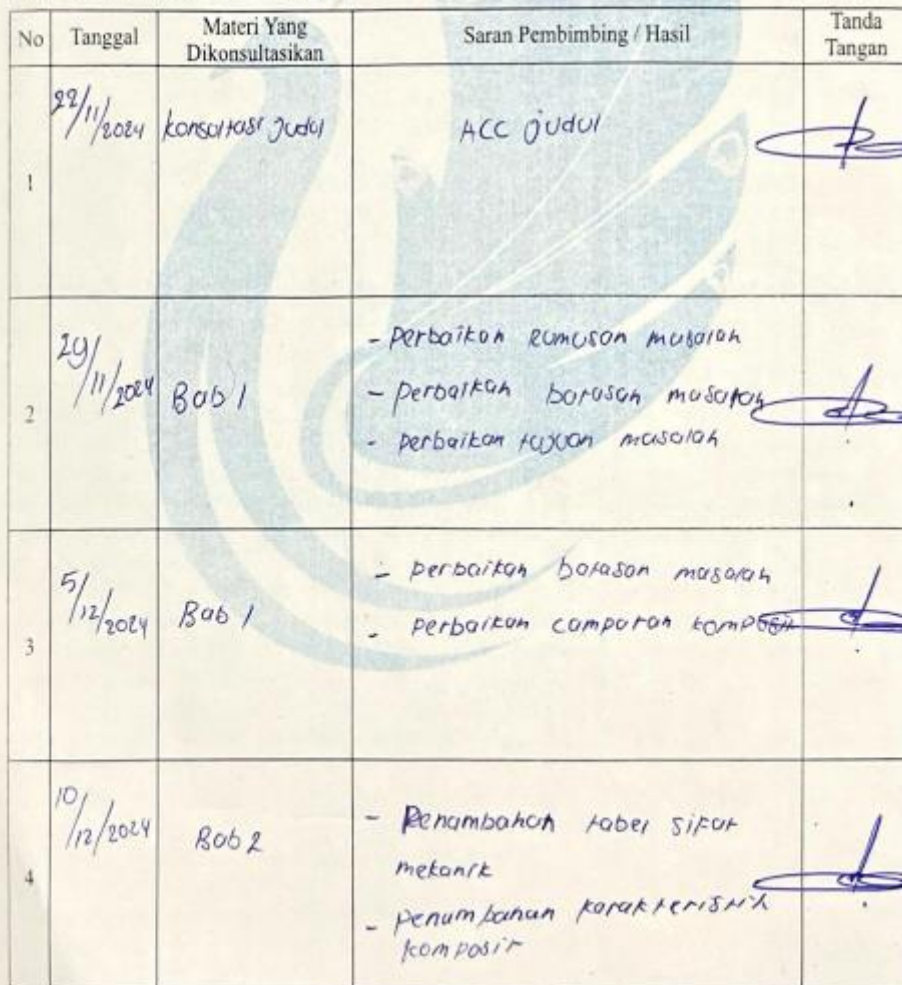 No Tanggal Materi Yang Dikonsultasikan Saran Pembimbing / Hasil Tanda Tangan
1 22/11/2024 konsultasi judul ACC judul
2 29/11/2024 Bab 1 - perbaikan rumusan masalah
- perbaikan batasan masalah
- perbaikan tujuan masalah
3 5/12/2024 Bab 1 - perbaikan batasan masalah
- perbaikan campuran komposit
4 10/12/2024 Bab 2 - Penambahan tabel sifat
mekanik
- penambahan karakteristik
komposit